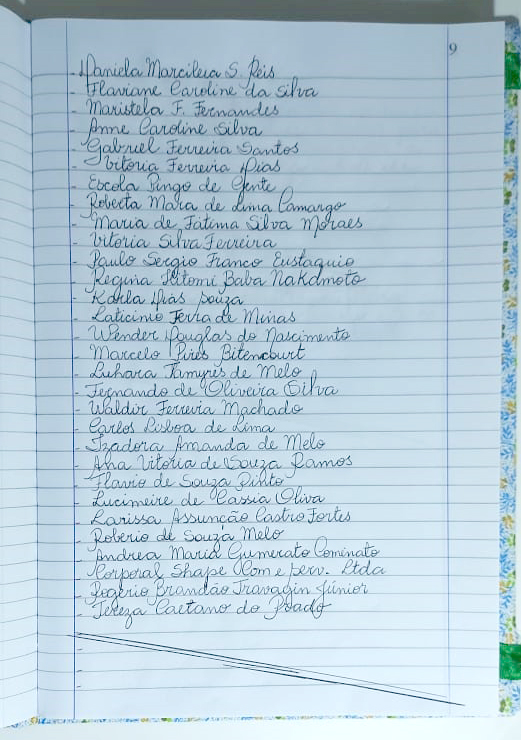 9
- Daniela Marcileia S. Reis
- Flaviane Caroline da Silva
- Maristela F. Fernandes
- Anne Caroline Silva
- Gabriel Ferreira Santos
- Vitória Ferreira Dias
- Escola Pingo de Gente
- Roberta Mara de Lima Camargo
- Maria de Fátima Silva Moraes
- Vitoria Silva Ferreira
- Paulo Sergio Franco Eustaquio
- Regina Hitomi Baba Nakamoto
- Karla Dias Souza
- Laticinio Terra de Minas
- Wender Douglas do Nascimento
- Marcelo Pires Bitencourt
- Luhara Tamyres de Melo
- Fernando de Oliveira Silva
- Waldir Ferreira Machado
- Carlos Lisboa de Lima
- Izadora Amanda de Melo
- Ana Vitoria de Souza Ramos
- Flavio de Souza Pinto
- Lucimeire de Cassia Oliva
- Larissa Assunção Castro Fortes
- Roberio de Souza Melo
- Andrea Maria Gumerato Cominato
- Corporal Shape Com e Serv. Ltda
- Rogério Brandão Travagin Júnior
- Tereza Caetano do Prado